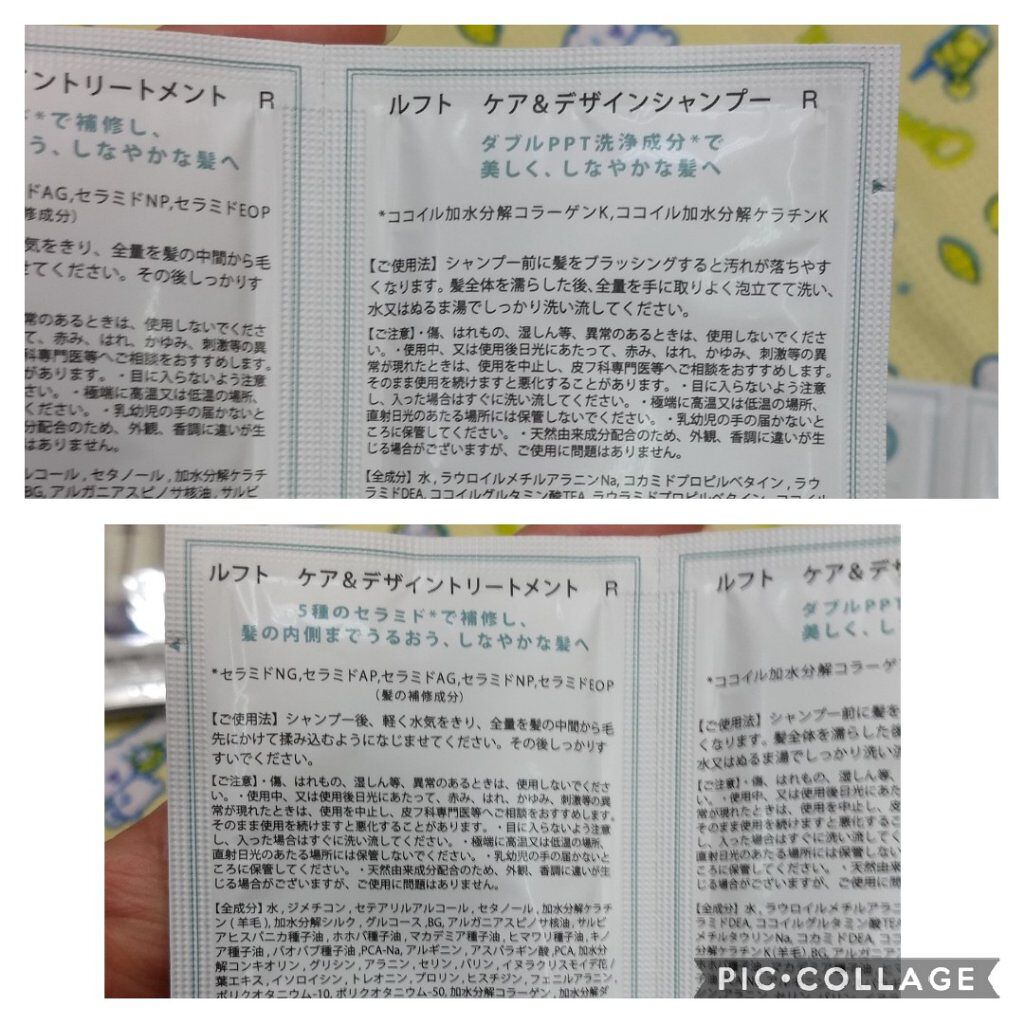 ントリートメント R
*で補修し、
う、しなやかな髪へ
ドAG,セラミドNP,セラミドEOP
修成分）
気をきり、全量を髪の中間から毛
せてください。その後しっかりす
常のあるときは、使用しないでくださ
て、赤み、はれ、かゆみ、刺激等の異
科専門医等へご相談をおすすめします。
があります。・目に入らないよう注意
さい。・極端に高温又は低温の場所、
ください。・乳幼児の手の届かないと
分配合のため、外観、香調に違いが生
はありません。
ルコール,セタノール,加水分解ケラチ
BG,アルガニアスピノサ核油,サルビ
ルフト ケア&デザインシャンプー R
ダブルPPT洗浄成分*で
美しく、しなやかな髪へ
*ココイル加水分解コラーゲンK,ココイル加水分解ケラチンK
【ご使用法】シャンプー前に髪をブラッシングすると汚れが落ちやす
くなります。髪全体を濡らした後、全量を手に取りよく泡立てて洗い、
水又はぬるま湯でしっかり洗い流してください。
【ご注意】・傷、はれもの、湿しん等、異常のあるときは、使用しないでくださ
い。・使用中、又は使用後日光にあたって、赤み、はれ、かゆみ、刺激等の異
常が現れたときは、使用を中止し、皮フ科専門医等へご相談をおすすめします。
そのまま使用を続けますと悪化することがあります。・目に入らないよう注意
し、入った場合はすぐに洗い流してください。・極端に高温又は低温の場所、
直射日光のあたる場所には保管しないでください。・乳幼児の手の届かないと
ころに保管してください。・天然由来成分配合のため、外観、香調に違いが生
じる場合がございますが、ご使用に問題はありません。
【全成分】水,ラウロイルメチルアラニンNa,コカミドプロピルベタイン,ラウ
ラミドDEA,ココイルグルタミン酸TEA,ラウラミドプロピルベタイン,ココイル
ルフト ケア&デザイントリートメント R
5種のセラミド*で補修し、
髪の内側までうるおう、しなやかな髪へ
*セラミドNG,セラミドAP,セラミドAG,セラミドNP,セラミドEOP
（髪の補修成分）
【ご使用法】シャンプー後、軽く水気をきり、全量を髪の中間から毛
先にかけて揉み込むようになじませてください。その後しっかりす
すいでください。
【ご注意】・傷、はれもの、湿しん等、異常のあるときは、使用しないでくださ
い。・使用中、又は使用後日光にあたって、赤み、はれ、かゆみ、刺激等の異
常が現れたときは、使用を中止し、皮フ科専門医等へご相談をおすすめします。
そのまま使用を続けますと悪化することがあります。・目に入らないよう注意
し、入った場合はすぐに洗い流してください。・極端に高温又は低温の場所、
直射日光のあたる場所には保管しないでください。・乳幼児の手の届かないと
ころに保管してください。・天然由来成分配合のため、外観、香調に違いが生
じる場合がございますが、ご使用に問題はありません。
【全成分】水,ジメチコン,セテアリルアルコール,セタノール,加水分解ケラチ
ン(羊毛),加水分解シルク,グルコース,BG,アルガニアスピノサ核油,サルビ
アヒスパニカ種子油,ホホバ種子油,マカデミア種子油,ヒマワリ種子油,キノ
ア種子油,バオバブ種子油,PCA-Na,アルギニン,アスパラギン酸,PCA,加水分
解コンキオリン,グリシン,アラニン,セリン,バリン,イヌラクリスモイデ花/
葉エキス,イソロイシン,トレオニン,プロリン,ヒスチジン,フェニルアラニン,
ポリクオタニウム-10,ポリクオタニウム-50,加水分解コラーゲン,加水分解ダ
ルフト ケア&デサ
ダブルPP
美しく、し
*ココイル加水分解コラーゲ
【ご使用法】シャンプー前に髪を
くなります。髪全体を濡らした後
水又はぬるま湯でしっかり洗い流
【ご注意】・傷、はれもの、湿しん等、
い。・使用中、又は使用後日光にあた
常が現れたときは、使用を中止し、皮
そのまま使用を続けますと悪化するこ
し、入った場合はすぐに洗い流してくだ
直射日光のあたる場所には保管しない
ころに保管してください。・天然由来成
じる場合がございますが、ご使用に問題
【全成分】水,ラウロイルメチルアラニ
ラミドDEA,ココイルグルタミン酸TEA
メチルタウリンNa,コカミドDEA,ココ
分解ケラチンK(羊毛),BG,アルガニ
PIC•COLLAGE